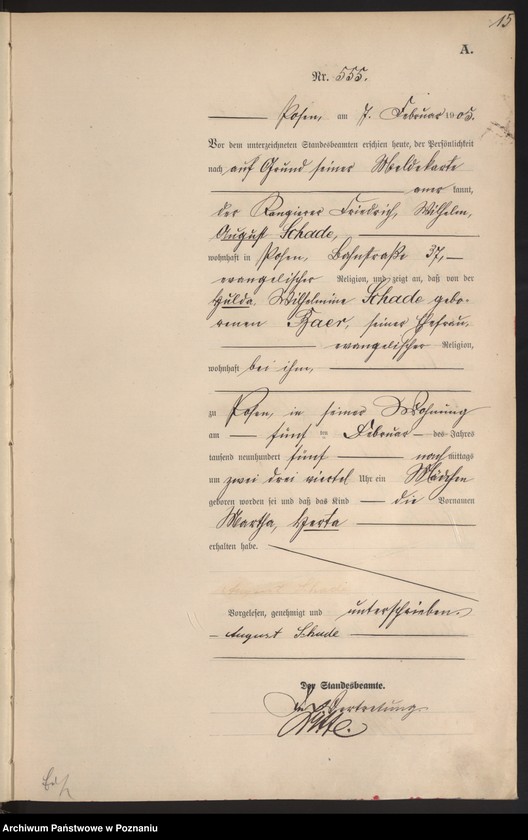 15
A.
Nr. 555.
Posen, am 7. Februar 1905.
Vor dem unterzeichneten Standesbeamten erschien heute, der Persönlichkeit
nach auf Grund seiner Meldekarte
aner kannt,
der Rangierer Friedrich, Wilhelm,
August Schade,
wohnhaft in Posen, Bahnstraße 37,
evangelischer Religion, und zeigt an, daß von der
Hulda, Wilhelmine Schade gebo-
renen Baer, seiner Ehefrau,
evangelischer Religion,
wohnhaft bei ihm,
zu Posen, in seiner Wohnung
am fünf ten Februar des Jahres
tausend neunhundert fünf nach mittags
um zwei drei viertel Uhr ein Mädchen
geboren worden sei und daß das Kind die Vornamen
Martha, Herta
erhalten habe.
August Schade
Vorgelesen, genehmigt und unterschrieben.
August Schade
Der Standesbeamte.
In Vertretung.
Archiwum Państwowe w Poznaniu